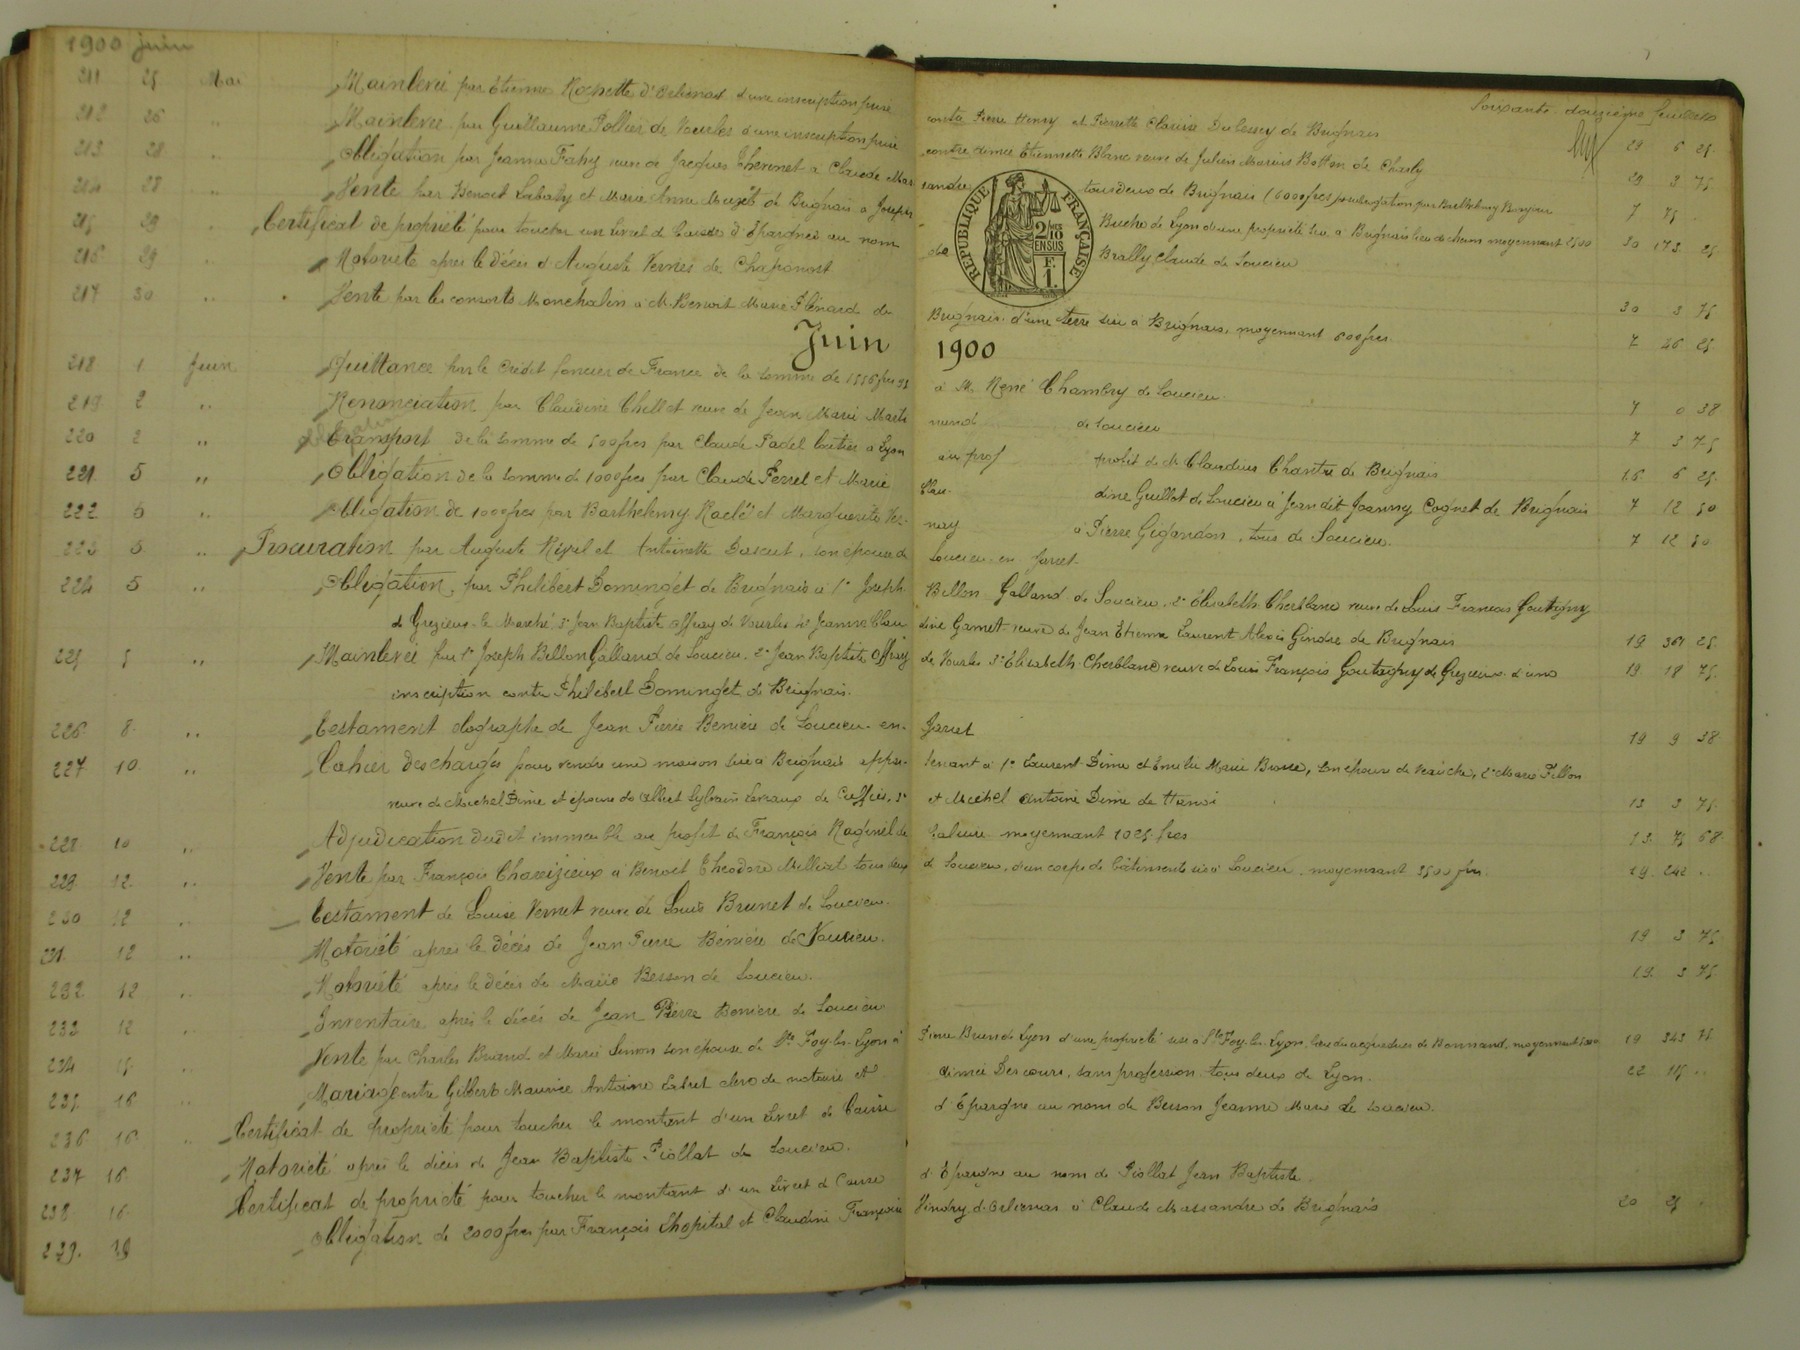 1900 juin
Soixante douzième feuillets
211 25 Mai Mainlevée par Etienne Rochette d'Orliénas d'une inscription prise contre Pierre Henry et Pierrette Clarisse Dubessey de Brignais 29 6 25
212 26 " Mainlevée par Guillaume Pollier de Vourles d'une inscription prise contre aimée Etiennette Blanc veuve de Julien Marius Botton de Charly 29 3 75
213 28 " Obligation par Jeanne Fahy veuve de Jacques Thevenet a Claude Mas sandre tous deux de Brignais (6000 frcs) 7 75
214 28 " Vente par Benoit Labaly et Marie Anne Muzet de Brignais a Joseph Buche de Lyon d'une propriété sise a Brignais moyennant 2500 30 173 25
215 29 " Certificat de propriété pour toucher un livret de Caisse d'Epargnes au nom de Brally Claude de Soucieu
216 29 " Notoriété apres le décès d'Auguste Vernes de Chaponost 30 3 75
217 30 " Vente par les consorts Monchalin a M. Benoit Marie Plénard de Brignais d'une terre sise a Brignais, moyennant 600 frcs 7 46 25
RÉPUBLIQUE FRANÇAISE
2/10 EN SUS
F. 1.
Juin 1900
218 1 Juin Quittance par le Crédit foncier de France de la somme de a M. René Chambry de Soucieu 7 0 38
219 2 " Renonciation par Claudine Chillet veuve de Jean Marie Marti nand de Soucieu 7 3 75
220 2 " Transport de la somme de 500 frcs par Claude Padel laitier a Lyon au prof profit de M. Claudius Chantre de Brignais 16 6 25
221 5 " Obligation de la somme de 1000 frcs par Claude Ferrel et Marie Clau dine Guillot de Soucieu a Jean dit Joanny Cognet de Brignais 7 12 50
222 5 " Obligation de 1000 frcs par Barthelemy Raclé et Marguerite Ver nay a Pierre Gigandon, tous de Soucieu 7 12 50
223 5 " Procuration par Auguste Rival et Antoinette Dascut, son epouse de Soucieu en Jarret
224 5 " Obligation, par Philibert Dominget de Brignais a 1° Joseph Billon Galland de Soucieu, 2° Élisabeth Cherblanc veuve de Louis François Goutagny
de Grezieu-le Marché, 3° Jean Baptiste Offray de Vourles 4° Jeanne Clau dine Garnet veuve de Jean Etienne Laurent Alexis Gindre de Brignais 19 361 25
225 5 " Mainlevée par 1° Joseph Billon Galland de Soucieu, 2° Jean Baptiste Offray de Vourles 3° Elisabeth Cherblanc veuve de Louis François Goutagny de Grezieu d'une 19 18 75
inscription contre Philibert Dominget de Brignais.
226 8 " Testament olographe de Jean Pierre Beniere de Soucieu-en-Jarret 19 9 38
227 10 " Cahier des charges pour vendre une maison sise a Brignais appar tenant a 1° Laurent Dime et Emilie Marie Brosse, son épouse de 2° Marie Pillon
veuve de Michel Dime et épouse de Albert Sylvain de Cuffies, 3° et Michel Antoine Dime de Hanoi 13 3 75
228 10 " Adjudication dudit immeuble au profit de François Raginel de moyennant 1025 frcs 13 75 68
229 12 " Vente par François Chavizieux a Benoit Théodore Milliat tous deux de Soucieu, d'un corps de bâtiments sis a Soucieu, moyennant 3500 frcs 19 242 "
230 12 " Testament de Louise Vernet veuve de Louis Brunet de Soucieu
231 12 " Notoriété apres le décès de Jean Pierre Bénière de Soucieu. 19 3 75
232 12 " Notoriété apres le décès de Marie Besson de Soucieu. 19 3 75
233 12 " Inventaire apres le décès de Jean Pierre Beniere de Soucieu
234 15 " Vente par Charles Briand et Marie Simon son epouse de Ste Foy-les-Lyon a Pierre Brun de Lyon d'une propriété sise a Ste Foy-les-Lyon, lieu des acqueducs de Bonnand, moyennant 19 343 75
235 16 " Mariage entre Gilbert Maurice Antoine clerc de notaire et aimée Descours, sans profession, tous deux de Lyon. 22 15 "
236 16 " Certificat de propriété pour toucher le montant d'un livret de Caisse d'Epargne au nom de Besson Jeanne Marie de Soucieu.
237 16 Notoriété apres le décès de Jean Baptiste Piollat de Soucieu.
238 16 Certificat de propriété pour toucher le montant d'un livret de Caisse d'Epargne au nom de Piollat Jean Baptiste.
239 19 Obligation de 2000 frcs par François Lhopital et Claudine Françoise Vindry d'Orliénas a Claude Massandre de Brignais 20 25